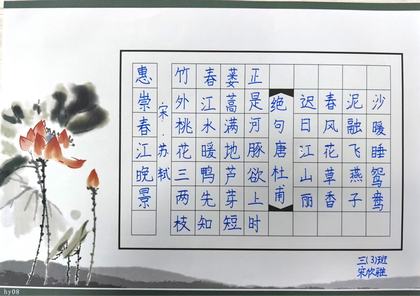 惠崇春江晚景
宋·苏轼
竹外桃花三两枝
春江水暖鸭先知
蒌蒿满地芦芽短
正是河豚欲上时
绝句唐杜甫
迟日江山丽
春风花草香
泥融飞燕子
沙暖睡鸳鸯
三(3)班
hy08